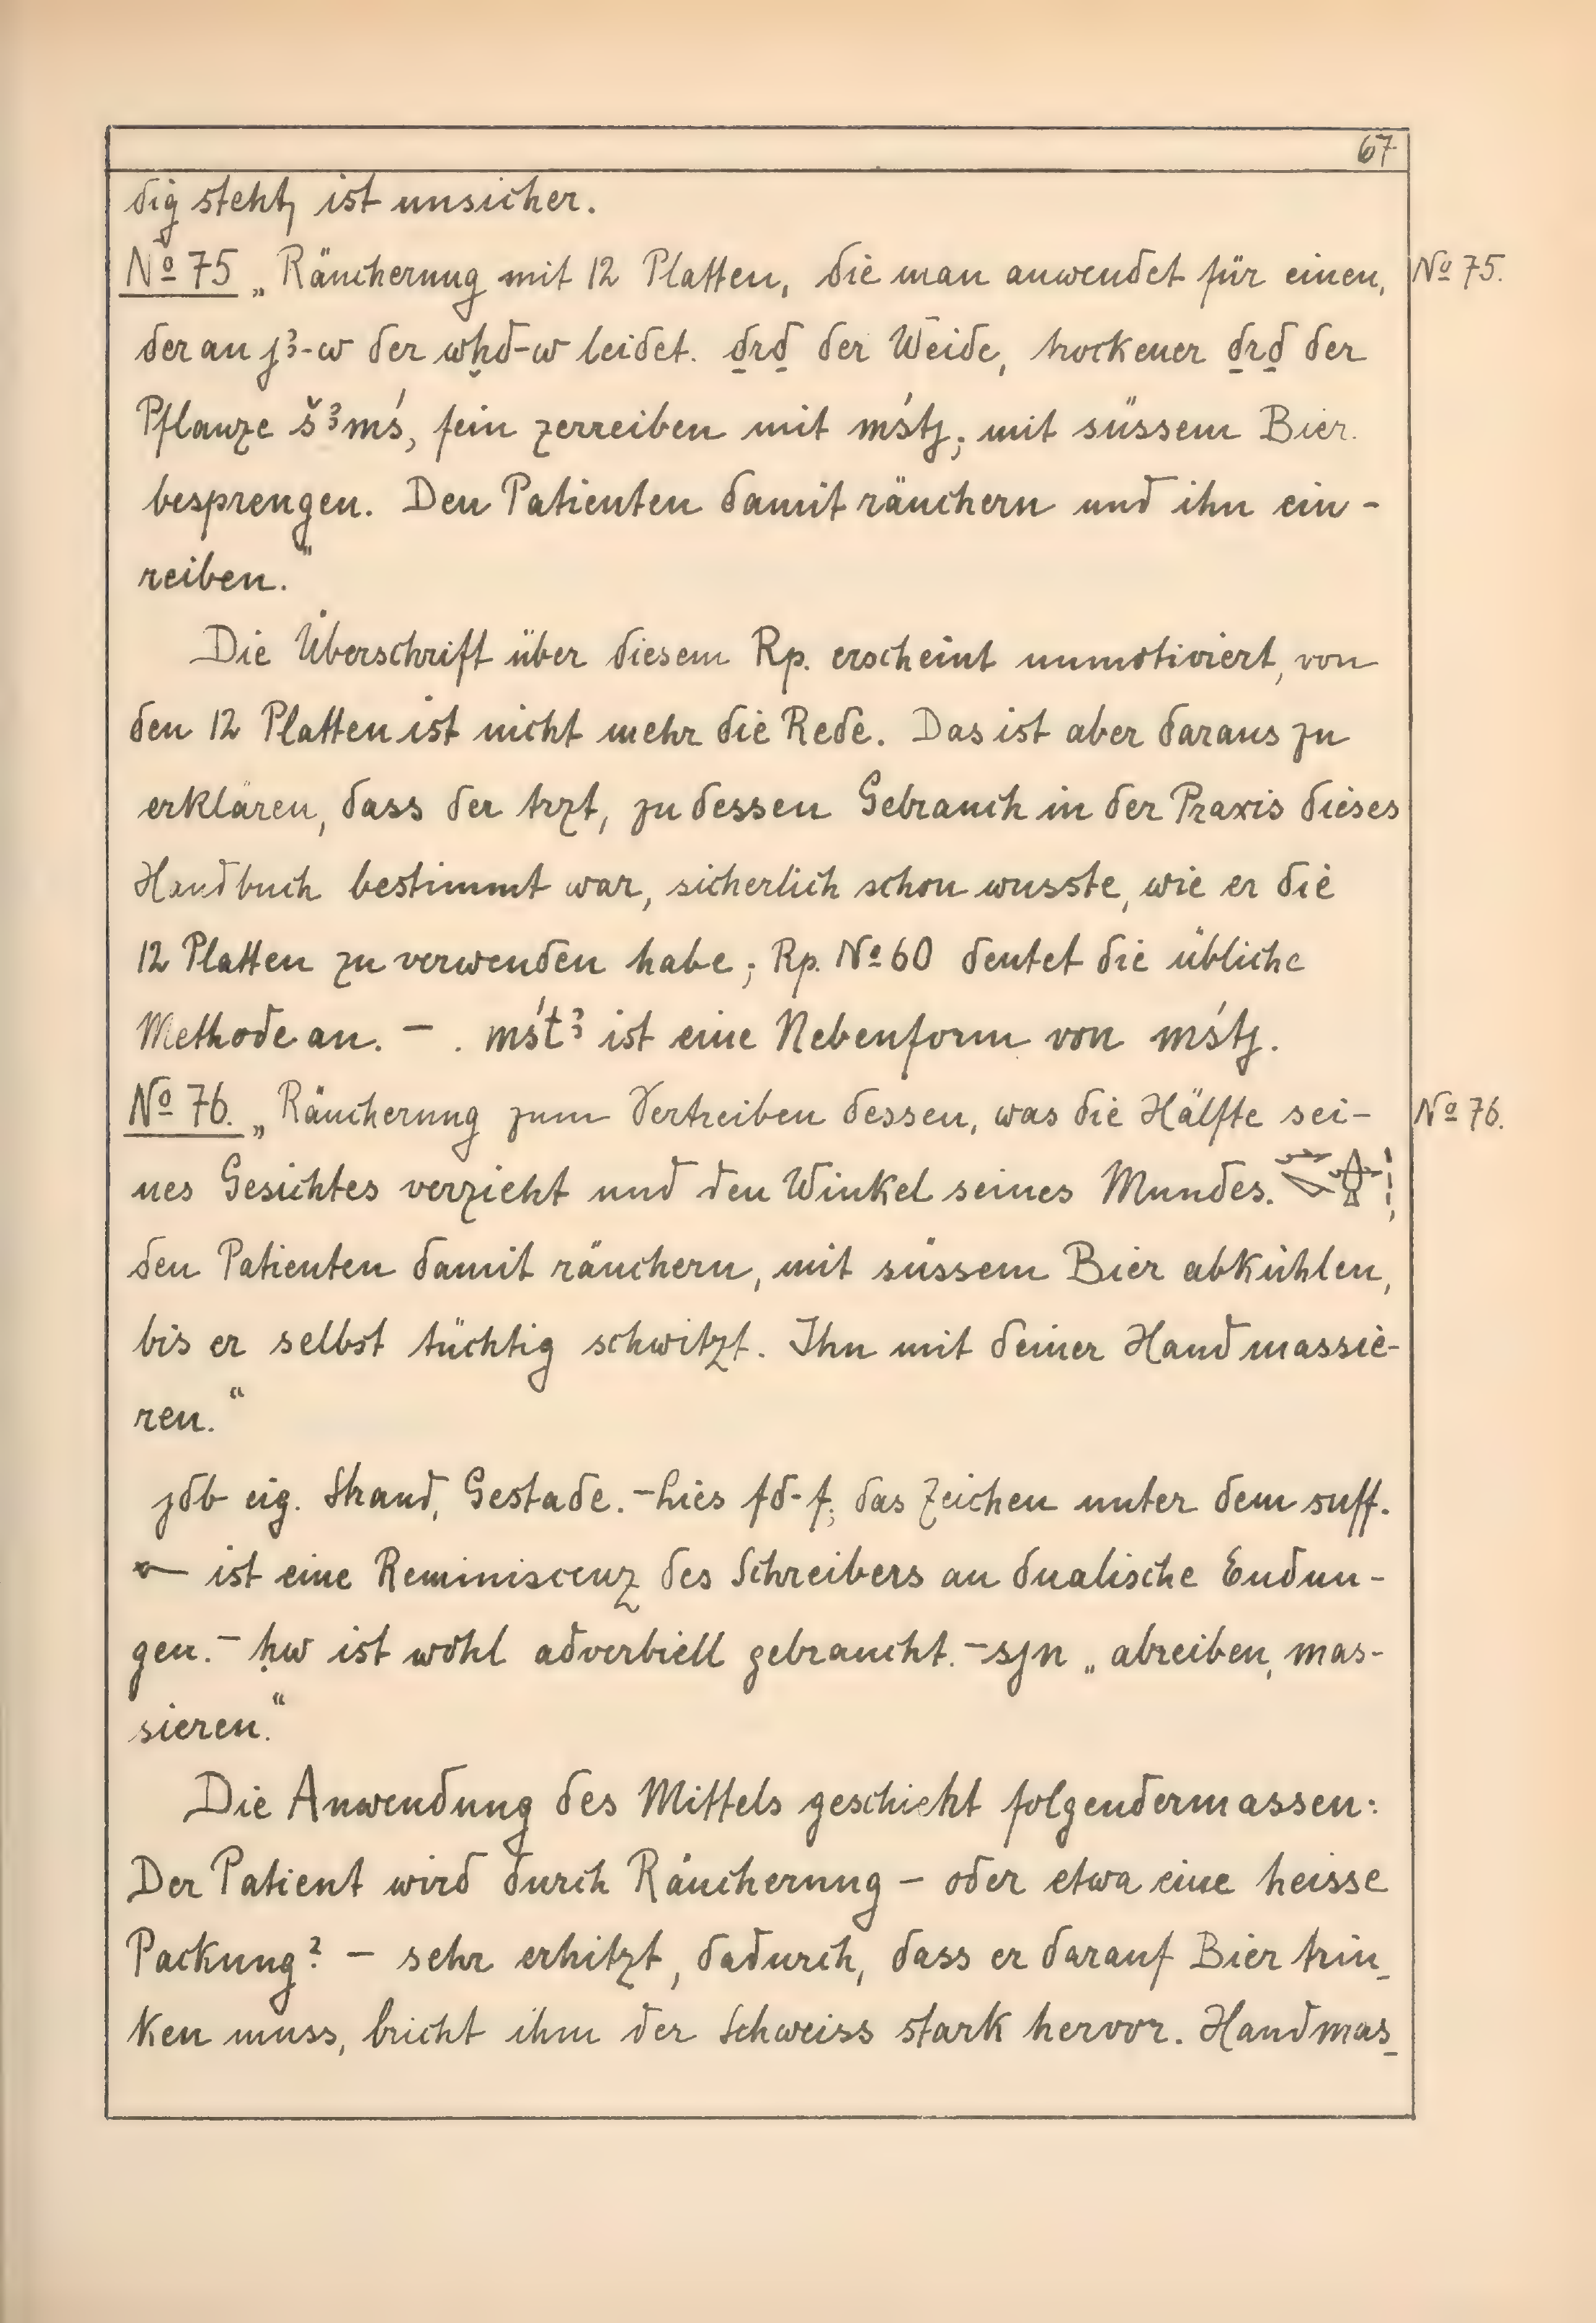 67
dig steht, ist unsicher.
No 75 „Räucherung mit 12 Platten, die man anwendet für einen, No 75.
der an jꜣ-w der wḫd-w leidet. ḏrḏ der Weide, trockener ḏrḏ der
Pflanze šꜣmś, fein zerreiben mit mśtj; mit süssem Bier
besprengen. Den Patienten damit räuchern und ihn ein-
reiben."
Die Überschrift über diesem Rp. erscheint unmotiviert, von
den 12 Platten ist nicht mehr die Rede. Das ist aber daraus zu
erklären, dass der Arzt, zu dessen Gebrauch in der Praxis dieses
Handbuch bestimmt war, sicherlich schon wusste, wie er die
12 Platten zu verwenden habe; Rp. No 60 deutet die übliche
Methode an. – . mśtꜣ ist eine Nebenform von mśtj.
No 76. „Räucherung zum Vertreiben dessen, was die Hälfte sei- No 76.
nes Gesichtes verzieht und den Winkel seines Mundes.
den Patienten damit räuchern, mit süssem Bier abkühlen,
bis er selbst tüchtig schwitzt. Ihn mit deiner Hand massie-
ren.“
jdb eig. Strand, Gestade. – lies fd-f; das Zeichen unter dem suff.
ist eine Reminiscenz des Schreibers an dualische Endun-
gen. – ḥw ist wohl adverbiell gebraucht. – sjn „abreiben, mas-
sieren.“
Die Anwendung des Mittels geschieht folgendermassen:
Der Patient wird durch Räucherung – oder etwa eine heisse
Packung? – sehr erhitzt, dadurch, dass er darauf Bier trin-
ken muss, bricht ihm der Schweiss stark hervor. Handmas-